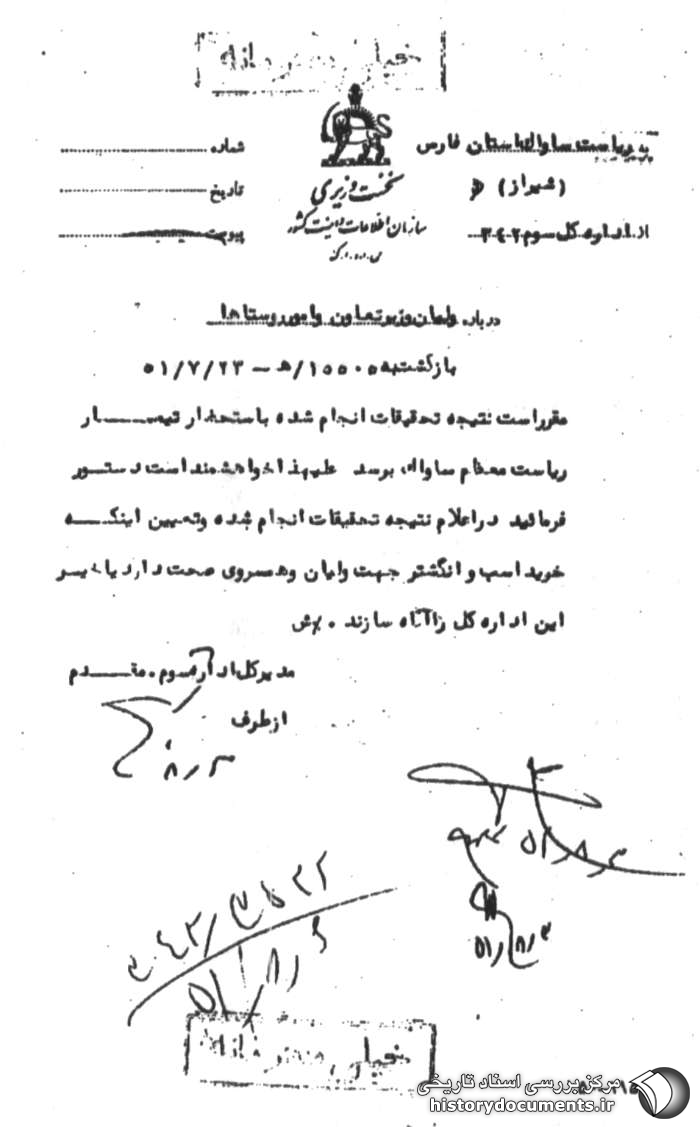 خیلی محرمانه
به ریاست ساواک استان فارس
(شیراز)
از اداره کل سوم ۳۴۲
نخست وزیری
سازمان اطلاعات و امنیت کشور
س.ا.و.ا.ک
شماره
تاریخ
پیوست
درباره ولیان وزیر تعاون و امور روستاها
بازگشت به ۱۵۵۰۵/ه‍ - ۵۱/۷/۲۳
مقرر است نتیجه تحقیقات انجام شده باستحضار تیمسار
ریاست معظم ساواک برسد علیهذا خواهشمند است دستور
فرمائید در اعلام نتیجه تحقیقات انجام شده و تعیین اینکه
خرید اسب و انگشتر جهت ولیان و همسروی صحت دارد یا خیر
این اداره کل را آگاه سازند.
مدیر کل اداره سوم. مقدم
از طرف
۸٫۳
۵۱٫۸٫۳
۵۱٫۸٫۳
۵۱٫۸٫۶
خیلی محرمانه
مرکز بررسی اسناد تاریخی
historydocuments.ir